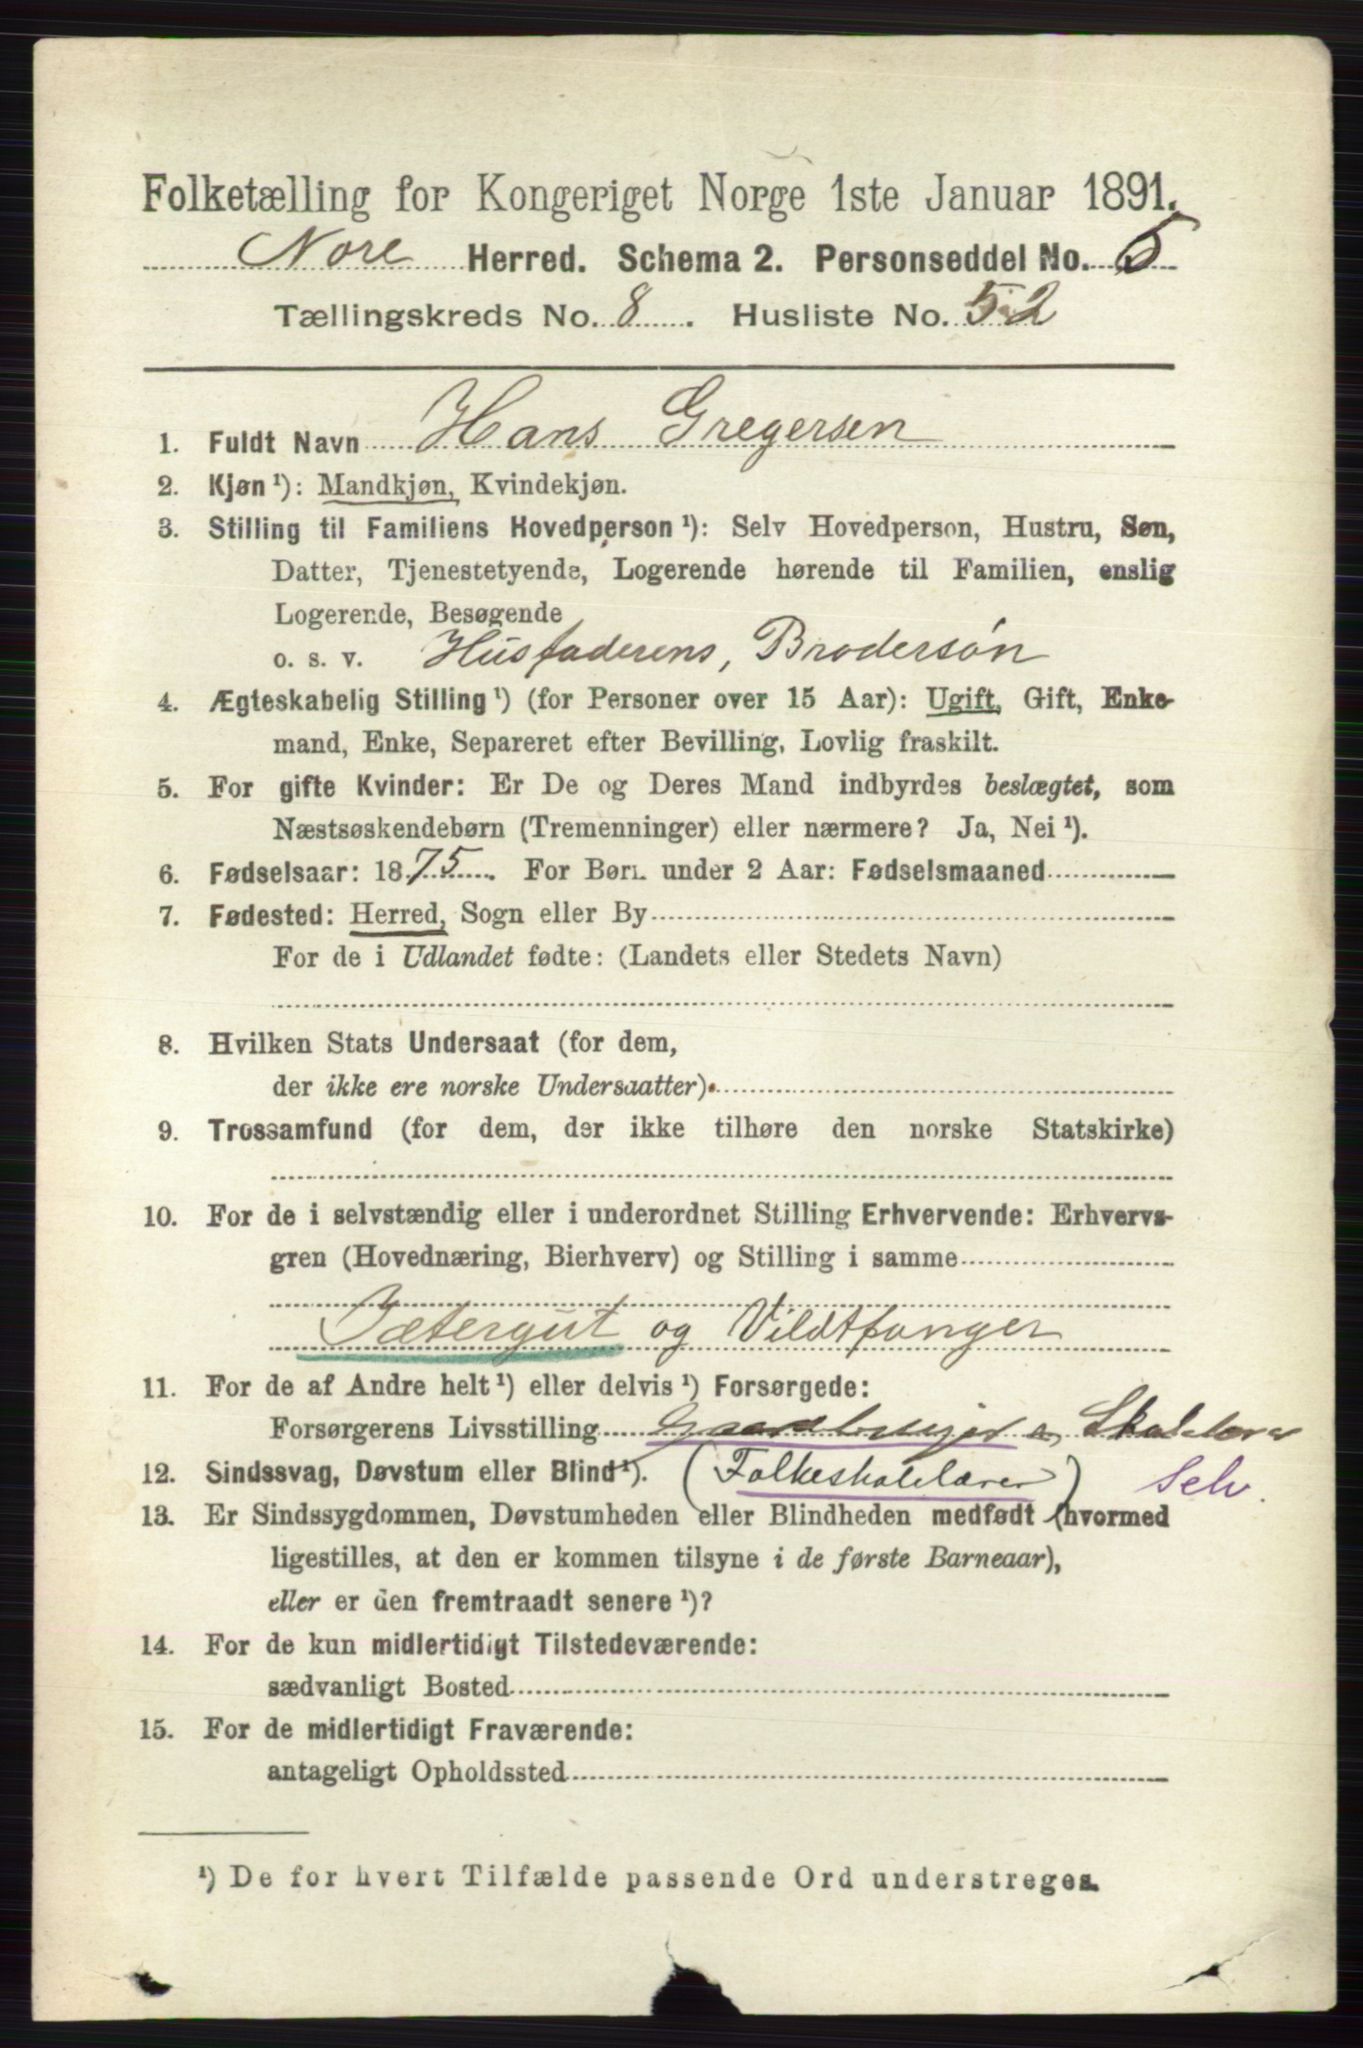 Folketælling for Kongeriget Norge 1ste Januar 1891.
Nore Herred. Schema 2. Personseddel No. 5
Tællingskreds No. 8. Husliste No. 52
1. Fuldt Navn Hans Gregersen
2. Kjøn ¹): Mandkjøn, Kvindekjøn.
3. Stilling til Familiens Hovedperson ¹): Selv Hovedperson, Hustru, Søn,
Datter, Tjenestetyende, Logerende hørende til Familien, enslig
Logerende, Besøgende
o. s. v. Husfaderens, Brodersøn
4. Ægteskabelig Stilling ¹) (for Personer over 15 Aar): Ugift, Gift, Enke-
mand, Enke, Separeret efter Bevilling, Lovlig fraskilt.
5. For gifte Kvinder: Er De og Deres Mand indbyrdes beslægtet, som
Næstsøskendebørn (Tremenninger) eller nærmere? Ja, Nei ¹).
6. Fødselsaar: 1875. For Børn under 2 Aar: Fødselsmaaned
7. Fødested: Herred, Sogn eller By
For de i Udlandet fødte: (Landets eller Stedets Navn)
8. Hvilken Stats Undersaat (for dem,
der ikke ere norske Undersaatter)
9. Trossamfund (for dem, der ikke tilhøre den norske Statskirke)
10. For de i selvstændig eller i underordnet Stilling Erhvervende: Erhvervs-
gren (Hovednæring, Bierhverv) og Stilling i samme
Jætergut og Vildtfanger
11. For de af Andre helt ¹) eller delvis ¹) Forsørgede:
Forsørgerens Livsstilling Gaardbruger
12. Sindssvag, Døvstum eller Blind ¹). (Folkeskolelærer) Selv.
13. Er Sindssygdommen, Døvstumheden eller Blindheden medfødt (hvormed
ligestilles, at den er kommen tilsyne i de første Barneaar),
eller er den fremtraadt senere ¹)?
14. For de kun midlertidigt Tilstedeværende:
sædvanligt Bosted
15. For de midlertidigt Fraværende:
antageligt Opholdssted
¹) De for hvert Tilfælde passende Ord understreges.